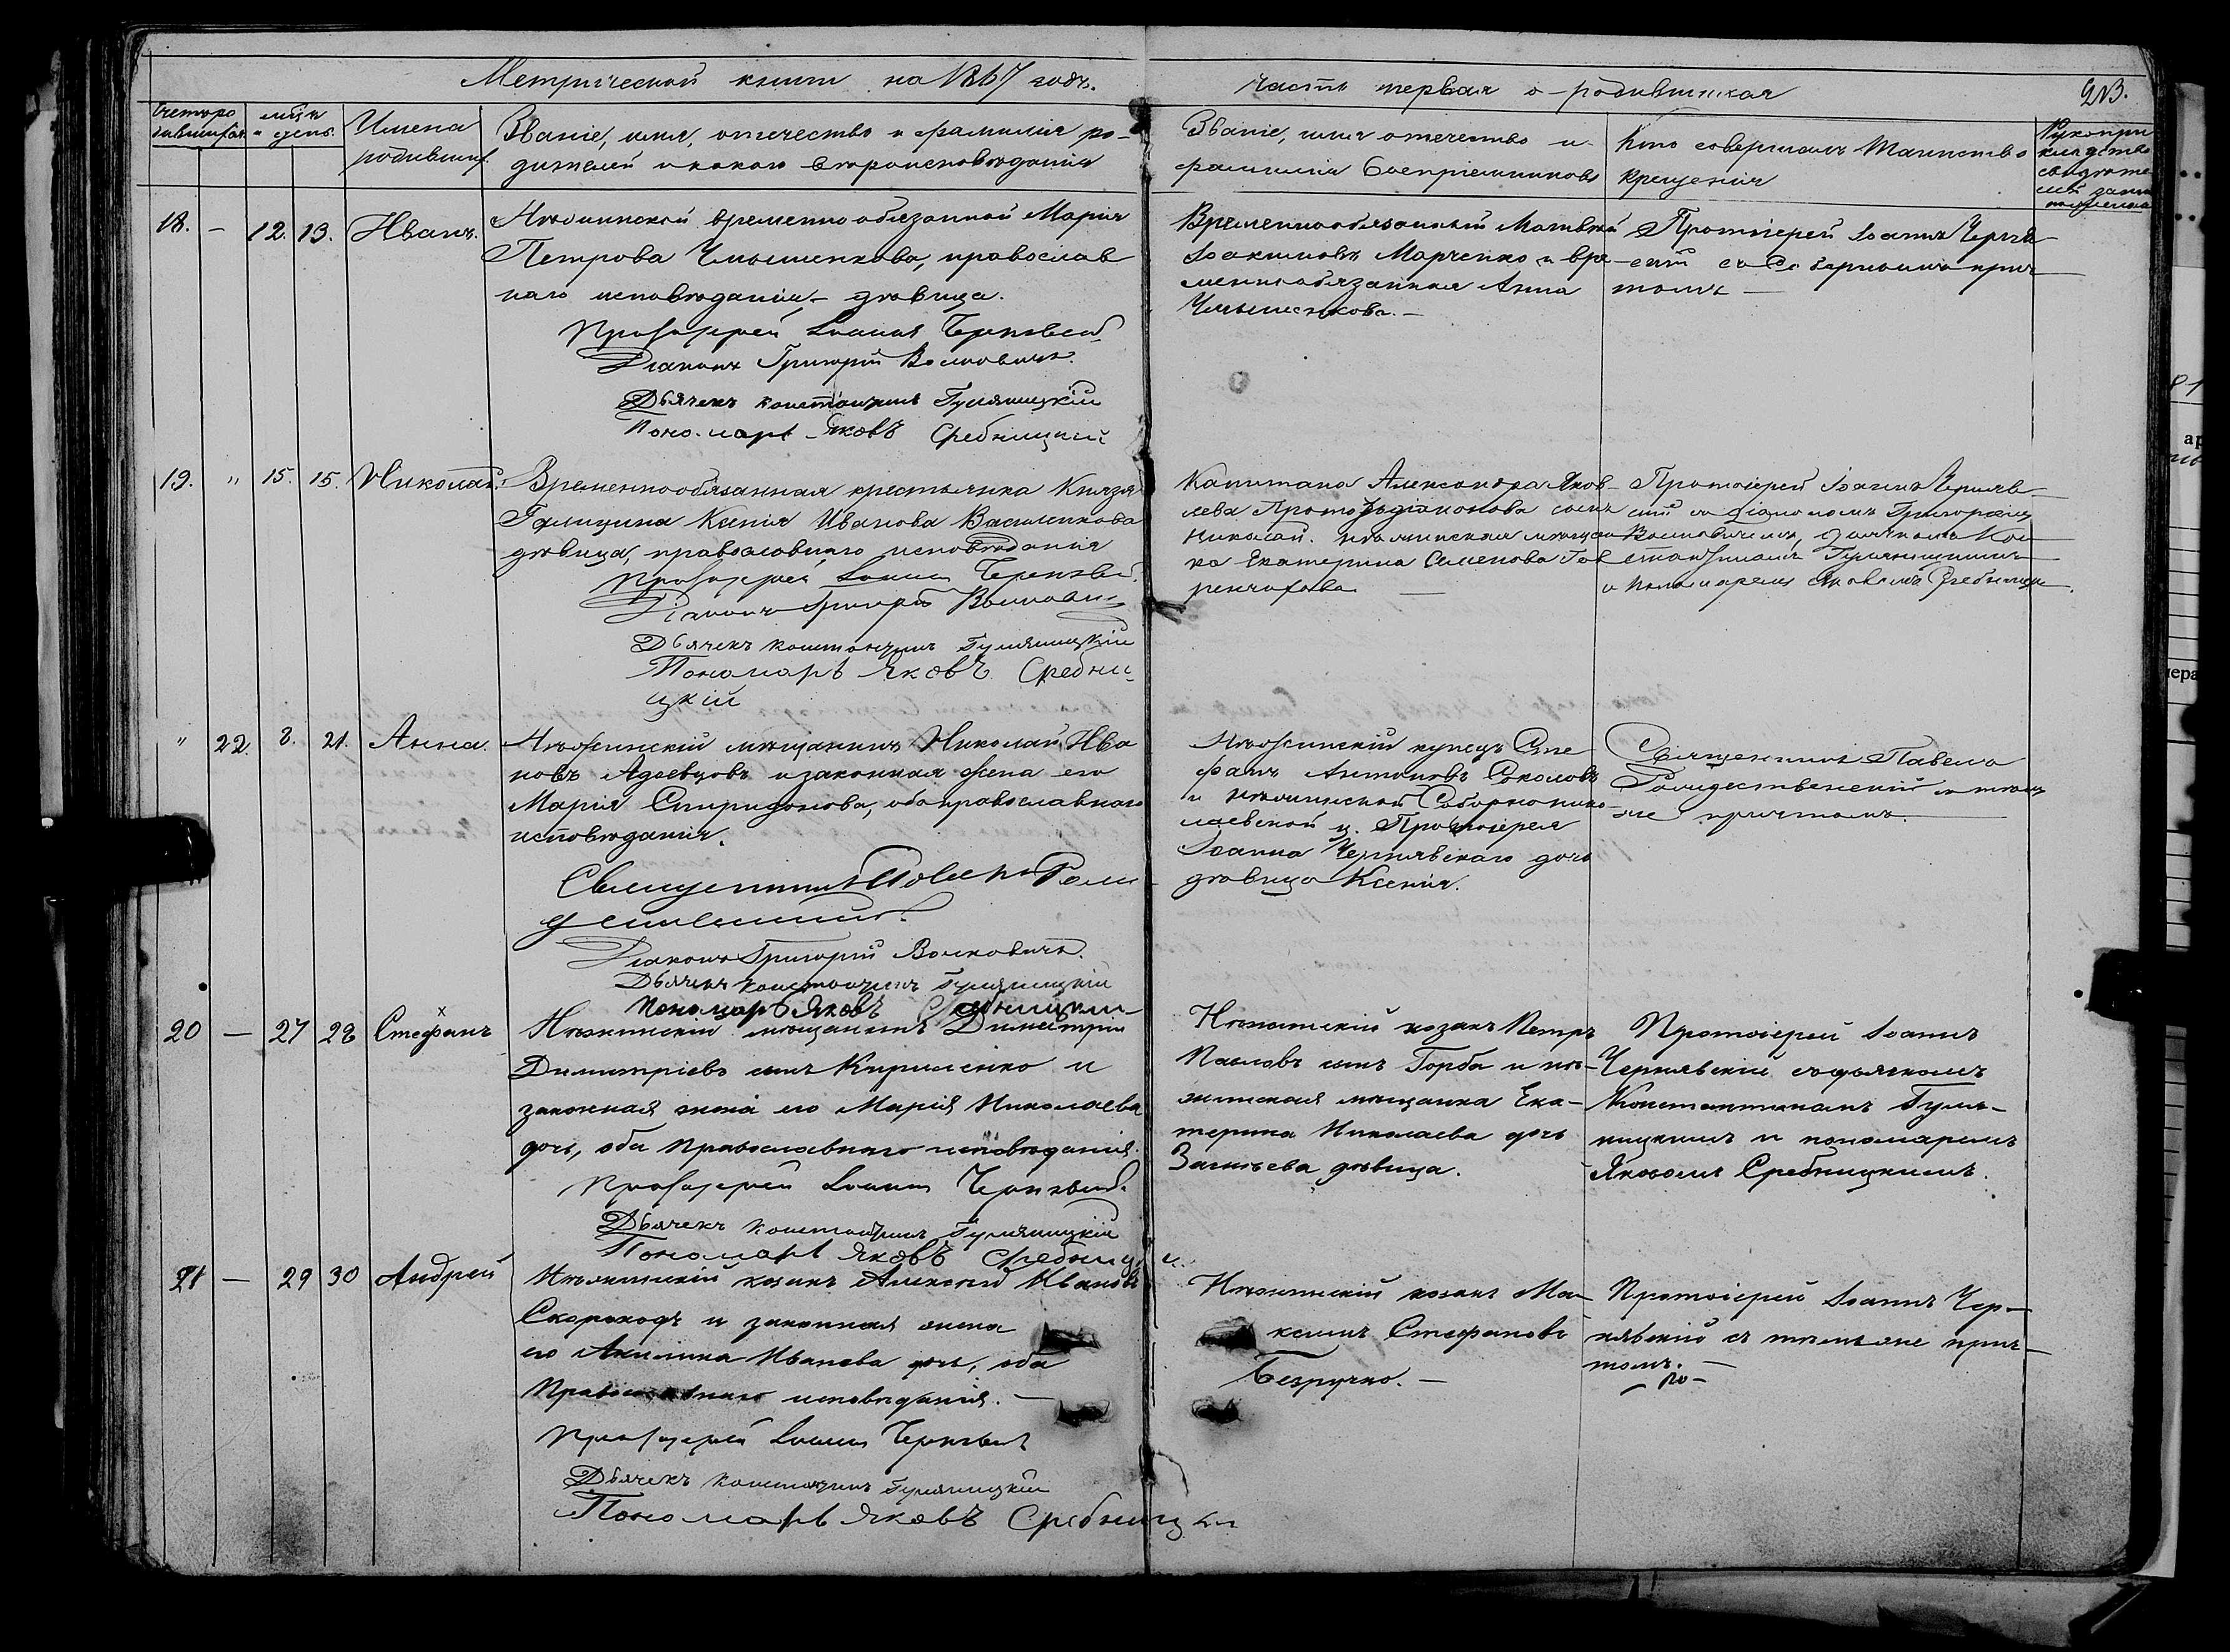 Метрической книги на 1867 годъ.
часть первая о родившихся
Имена родившихъ.
Званіе, имя, отечество и фамилія ро-
дителей и какого вѣроисповѣданія
Званіе, имя отечество и
фамилія воспріемниковъ
Кто совершалъ таинство
крещенія
18. — 12. 13. Иванъ.
Нѣжинской временнообязанной Марія
Петрова, православ
наго исповѣданія, дѣвица.
Протоіерей Іоаннъ Чернявскій
Діаконъ Григорій Волковичъ.
Дьячекъ Константинъ Гуляницкій
Пономарь Яковъ Сребницкій
Временнообязанный Матвѣй
Іоакимовъ Марченко и вре
меннообязанная Анна
Протоіерей Іоаннъ Черняв
скій съ Соборнымъ прич
томъ —
19. " 15. 15. Николай.
Временнообязанная крестьянка Князя
Голицина Ксенія Иванова Василенкова
дѣвица, православнаго исповѣданія
Протоіерей Іоаннъ Чернявскій
Діаконъ Григорій Волковичъ
Дьячекъ Константинъ Гуляницкій
Пономарь Яковъ Сребни-
цкій
Капитана Александра Яков-
лева Протодіаконова сынъ
Николай. нѣжинская мѣщан
ка Екатерина Семенова
Протоіерей Іоаннъ Черняв-
скій съ діакономъ Григоріемъ
Волковичемъ, дьячкомъ Кон
стантиномъ Гуляницкимъ
и пономаремъ Яковомъ Сребницк
" 22. 8. 21. Анна.
Нѣжинскій мѣщанинъ Николай Ива
новъ и законная жена его
Марія Спиридонова, оба православнаго
исповѣданія.
Священникъ Павелъ Рож
дественскій.
Діаконъ Григорій Волковичъ.
Дьячекъ Константинъ Гуляницкій
Пономарь Яковъ Сребницкій
Нѣжинскій купецъ Сте
фанъ Антоновъ Соколовъ
и нѣжинской Соборно Нико
лаевской ц. Протоіерея
Іоанна Чернявскаго дочь
дѣвица Ксенія.
Священникъ Павелъ
Рождественскій съ тѣмъ
же причтомъ.
20 — 27 28 Стефанъ
Нѣжинскій мѣщанинъ Димитрій
Димитріевъ сынъ Кириленко и
законная жена его Марія Николаева
дочь, оба православнаго исповѣданія.
Протоіерей Іоаннъ Чернявскій.
Дьячекъ Константинъ Гуляницкій
Пономарь Яковъ Сребницкі
Нѣжинскій козакъ Петръ
Павловъ сынъ Горба и нѣ-
жинская мѣщанка Ека-
терина Николаева дочь
дѣвица.
Протоіерей Іоаннъ
Чернявскій съ дьячкомъ
Константиномъ Гуля-
ницкимъ и пономаремъ
Яковомъ Сребницкимъ.
21 — 29 30 Андрей
Нѣжинскій козакъ Алексѣй Ивановъ
Скороходъ и законная жена
его Акилина Иванова дочь, оба
православнаго исповѣданія. —
Протоіерей Іоаннъ Чернявскій
Дьячекъ Константинъ Гуляницкій
Пономарь Яковъ Сребницкій
Нѣжинскій козакъ Ма-
ксимъ Стефановъ
Безручко. —
Протоіерей Іоаннъ Чер-
нявскій съ тѣмъ же прич-
томъ. —